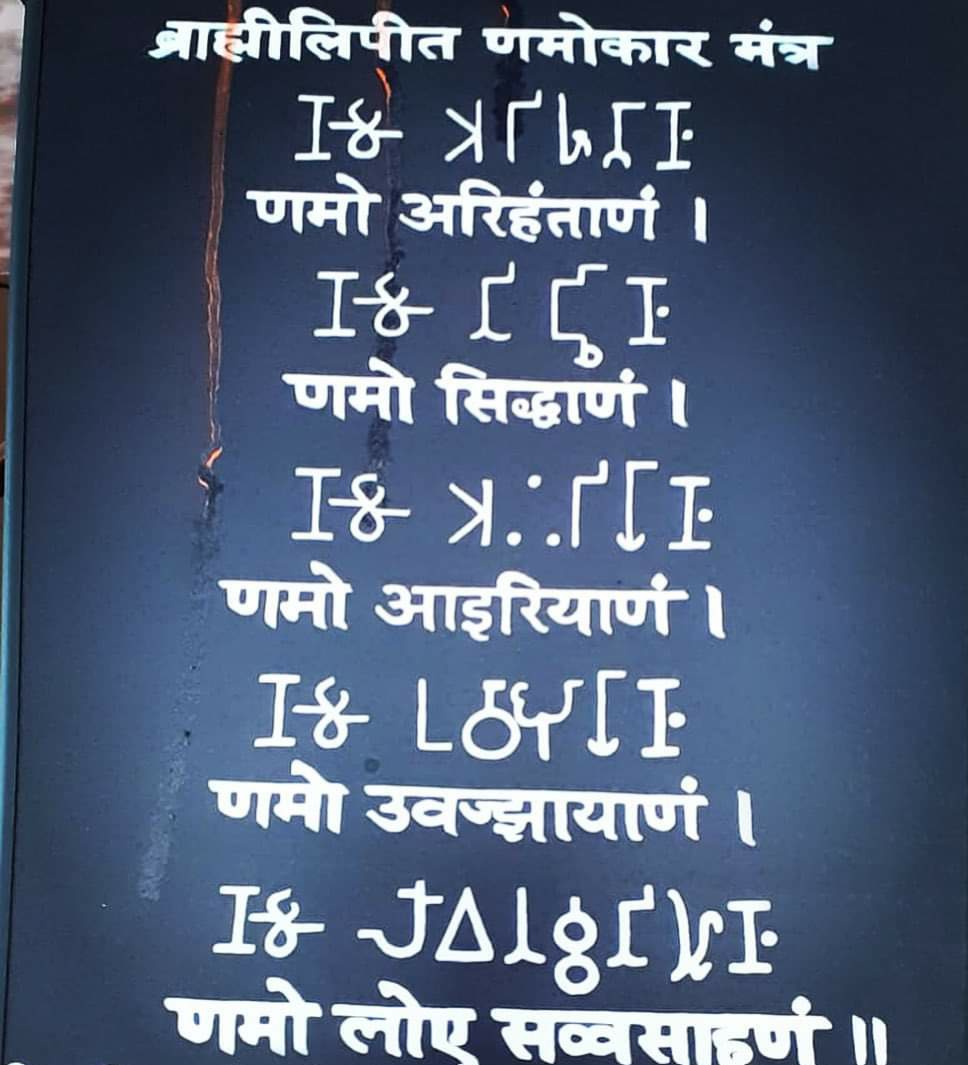 ब्राह्मीलिपीत णमोकार मंत्र
𑀡𑀫𑁄 𑀅𑀭𑀺𑀳𑀁𑀢𑀸𑀡𑀁
णमो अरिहंताणं ।
𑀡𑀫𑁄 𑀲𑀺𑀤𑁆𑀥𑀸𑀡𑀁
णमो सिद्धाणं ।
𑀡𑀫𑁄 𑀆𑀇𑀭𑀺𑀬𑀸𑀡𑀁
णमो आइरियाणं ।
𑀡𑀫𑁄 𑀉𑀯𑀚𑁆𑀛𑀸𑀬𑀸𑀡𑀁
णमो उवज्झायाणं ।
𑀡𑀫𑁄 𑀮𑁄𑀏 𑀲𑀯𑁆𑀯𑀲𑀸𑀳𑀽𑀡𑀁
णमो लोए सव्वसाहूणं ॥